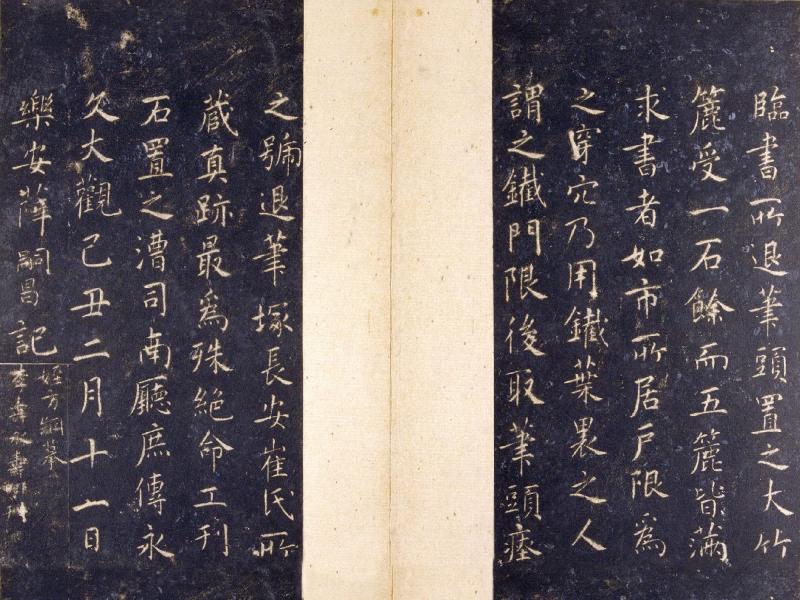 臨書所退筆頭置之大竹
簏受一石餘而五簏皆滿
求書者如市所居戶限爲
之穿穴乃用鐵葉裹之人
謂之鐵門限後取筆頭瘞
之號退筆塚長安崔氏所
藏真跡最爲殊絶命工刊
石置之漕司南廳庶傳永
久大觀己丑二月十一日
樂安薛嗣昌記
姪方綱摹
李壽永壽明刊